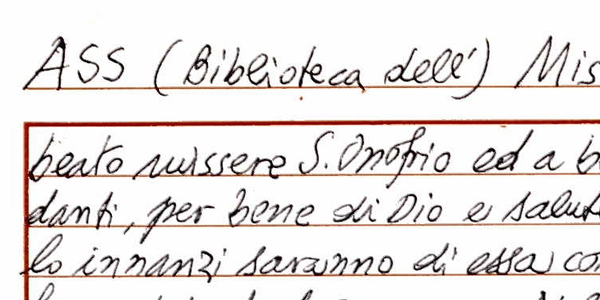 ASS (Biblioteca dell') Mis
beato missere S. Onofrio ed a b
danti, per bene di Dio e salut
lo innanzi saranno di essa co